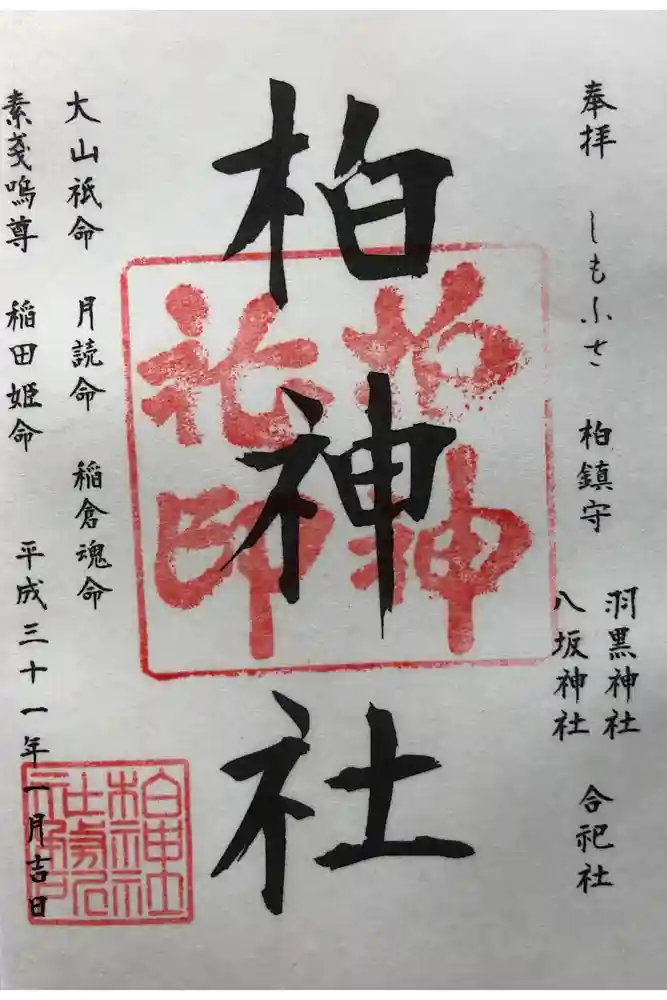 奉拝 しもふさ 柏鎮守
羽黒神社
八坂神社
合祀社
柏神社
柏神
社印
大山祇命 月読命 稲倉魂命
素戔嗚尊 稲田姫命 平成三十一年一月吉日
柏神社
社務所印